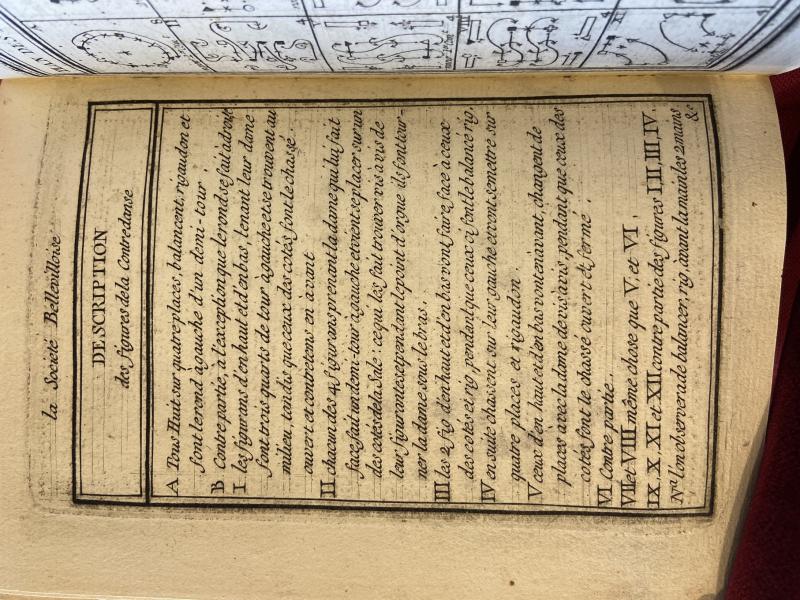 la Societé Bellevilloise
DESCRIPTION
des figures de la Contredanse
A Tous Huit sur quatre places, balancent, rigaudon et
font le rond à gauche d'un demi-tour ;
B Contre partie, à l'exception que le rond se fait à droite
I les figurans d'en haut et d'en bas, tenant leur dame
font trois quarts de tour à gauche et se trouvent au
milieu, tandis que ceux des cotés font le chassé
ouvert et contretens en avant
II chacun des 4 figurans prenant la dame qui lui fait
face fait un demi-tour à gauche et vient se placer sur un
des cotés de la Sale : ce qui les fait trouver vis à vis de
leur figurante cependant le point d'orgue ils font tour-
ner la dame sous le bras .
III les 2 fig d'en haut et d'en bas vont faire face à ceux
des cotés et rig pendant que ceux ci font le balancé rig.
IV en suite chassent sur leur gauche et vont se mettre sur
quatre places et rigaudon
V ceux d'en haut et d'en bas vont en avant, changent de
places avec la dame de vis à vis, pendant que ceux des
cotés font le chassé ouvert et fermé .
VI Contre partie .
VII et VIII même chose que V. et VI .
IX. X. XI et XII. contre partie des figures I, II, III, IV.
Nta l'on observera de balancer, rig, avant la main les 2 mains
&c